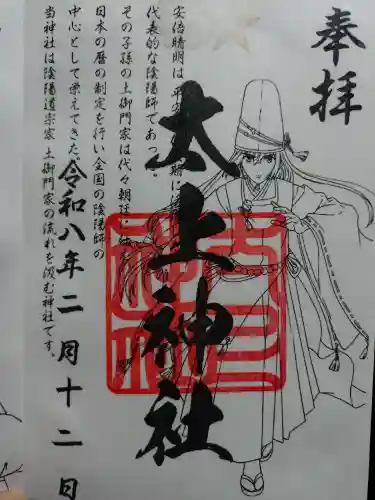 奉拝
安倍晴明は平安
代表的な陰陽師であった。
その子孫の土御門家は代々朝廷
日本の暦の制定を行い全国の陰陽師の
中心として栄えてきた。
当神社は陰陽道宗家 土御門家の流れを汲む神社です。
太上神社
令和八年二月十二日